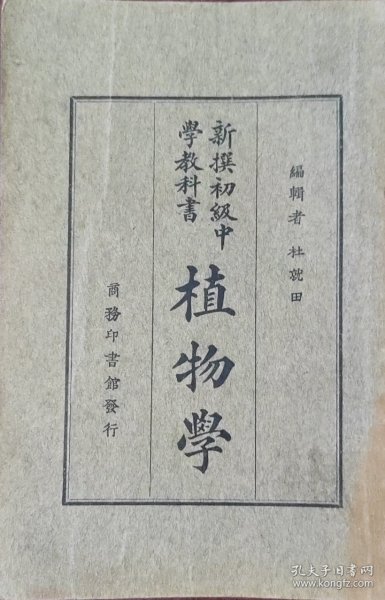 編輯者 杜就田
新撰初級中
學教科書
植物學
商務印書館發行
孔夫子旧书网